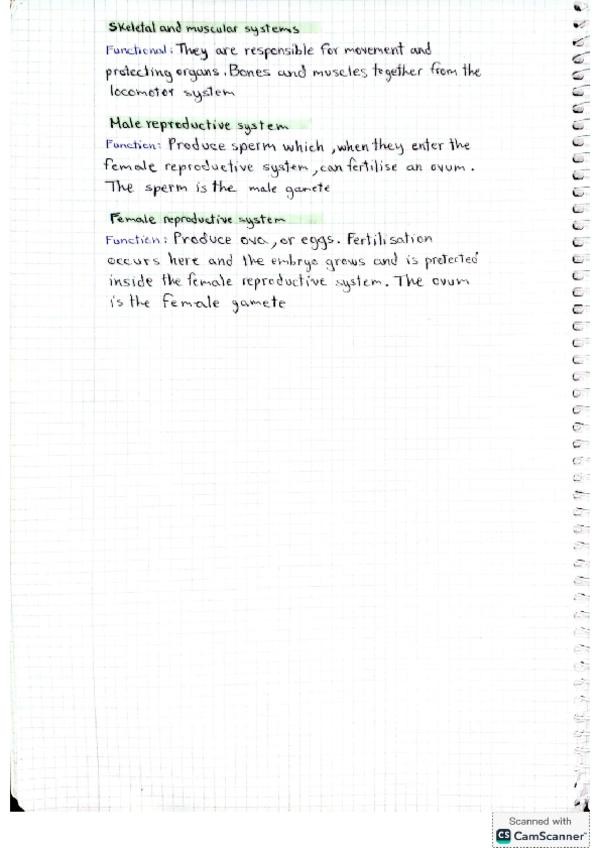 Skeletal and muscular systems
Functional: They are responsible for movement and
protecting organs. Bones and muscles together from the
locomotor system
Male reproductive system
Function: Produce sperm which, when they enter the
female reproductive system, can fertilise an ovum.
The sperm is the male gamete
Female reproductive system
Function: Produce ova, or eggs. Fertilisation
occurs here and the embryo grows and is protected
inside the female reproductive system. The ovum
is the female gamete
Scanned with
CS CamScanner